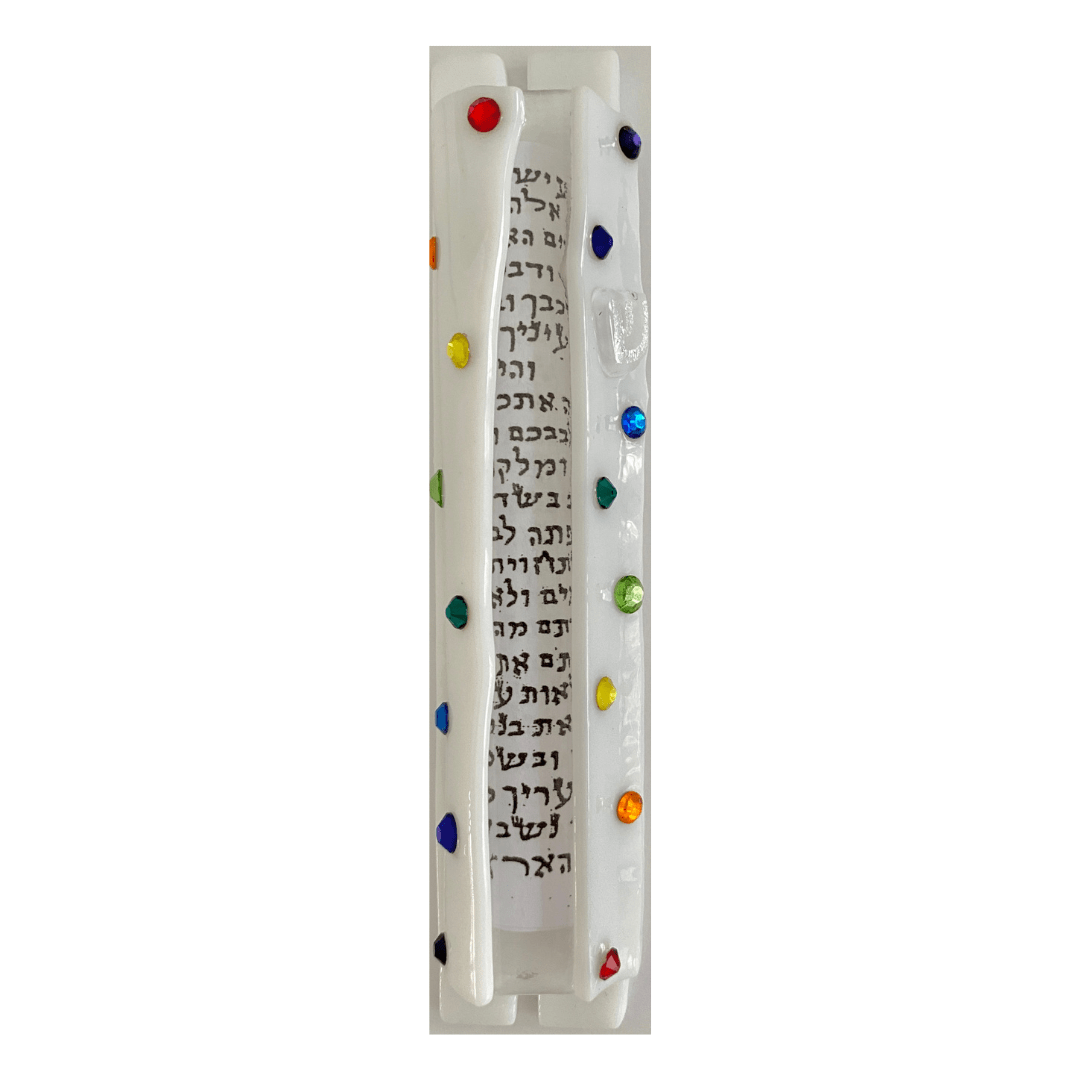 יש
אלה
ים הא
ודב
כבך וב
עיניך
והי
ה אתכ
בבכם ו
ומלק
ב בשד
פתה לב
תחוית
ים ולא
תם מה
תם את
אות ע
את בנ
ובש
עריך
נשב
האר
ש